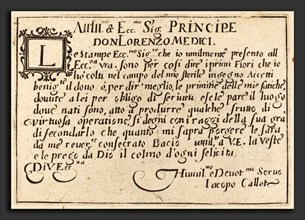 All Ill.mo & Ecc.mo Sig. PRINCIPE
DON LORENZO MEDICI.
LE Stampe Ecc.mo Sig.re che io umilmente presento all
Ecc.za vra, sono per cosi dire i primi Fiori che io
hò colti nel campo del mio sterile ingegno Accetti
benig.te il dono ò, per dir meglio, le primitie delle mie fatiche,
douute a lei per obligo di seruitu e se le pare il luogo
doue nati sono, atto a produrre qualche frutto di
virtuosa operatione, si degni con i raggi della sua grã
di secondarlo che quanto mi saprà porgere le sarà
da me reuer.te consecrato Bacio umil.te a V.E. la Veste
e le prego da Dio il colmo d'ogni felicità.
Di V Ecc.za
Humil.e Deuot.mo Seruo
Iacopo Callot